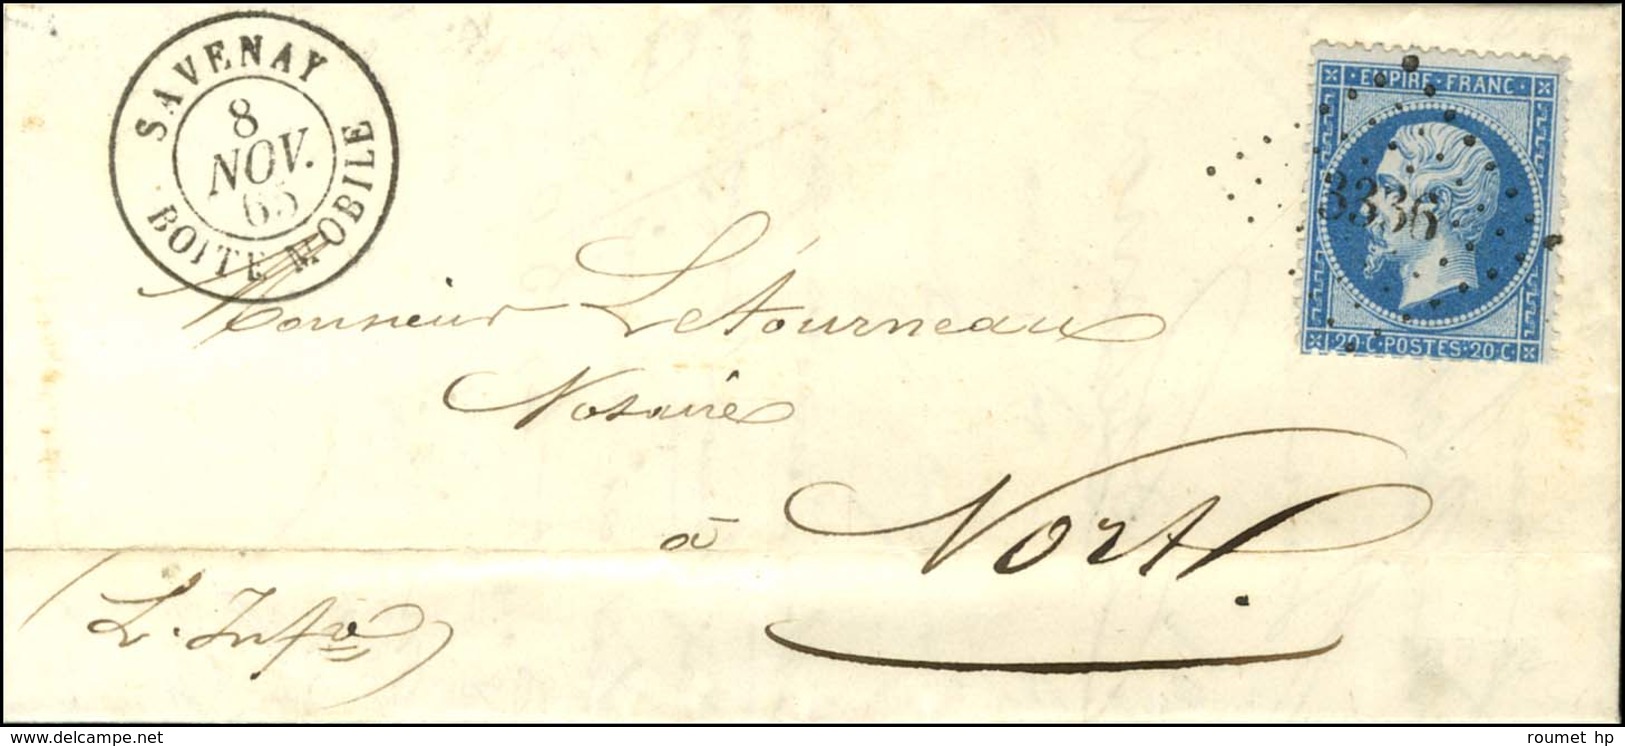 SAVENAY
8
NOV.
65
BOITE MOBILE
EMPIRE · FRANC
3336
20·C·POSTES·20·C
Monsieur Letourneau
Notaire
à Nort
L. Infre
www.delcampe.net
roumet hp